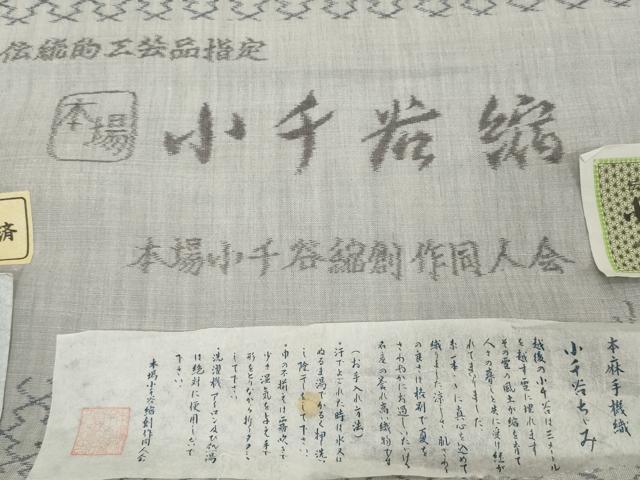 伝統的工芸品指定
本場
小千谷縮
本場小千谷縮創作同人会
済
本麻手機織
小千谷ちゞみ
越後の小千谷は三メートル
を越す雪に埋れます
その雪の風土が縮を育て
人々の暮しと共に受け継が
れてまいりました
糸一本一本に真心を込めて
織りました涼しさと肌ざわり
の良さは格別で夏を
さわやかにお過しいただける
名産の誉れ高い織物です
(お手入れ方法)
・汗でよごれた時は水又は
ぬるま湯でかるく押洗い
し陰干しをして下さい。
・巾の不揃いには霧吹きで
少々湿気を与え手で
形をととのえながら折りタタミ
して下さい。
・洗濯機アイロン及び熱湯
は絶対に使用しないで
下さい。
本場小千谷縮創作同人会